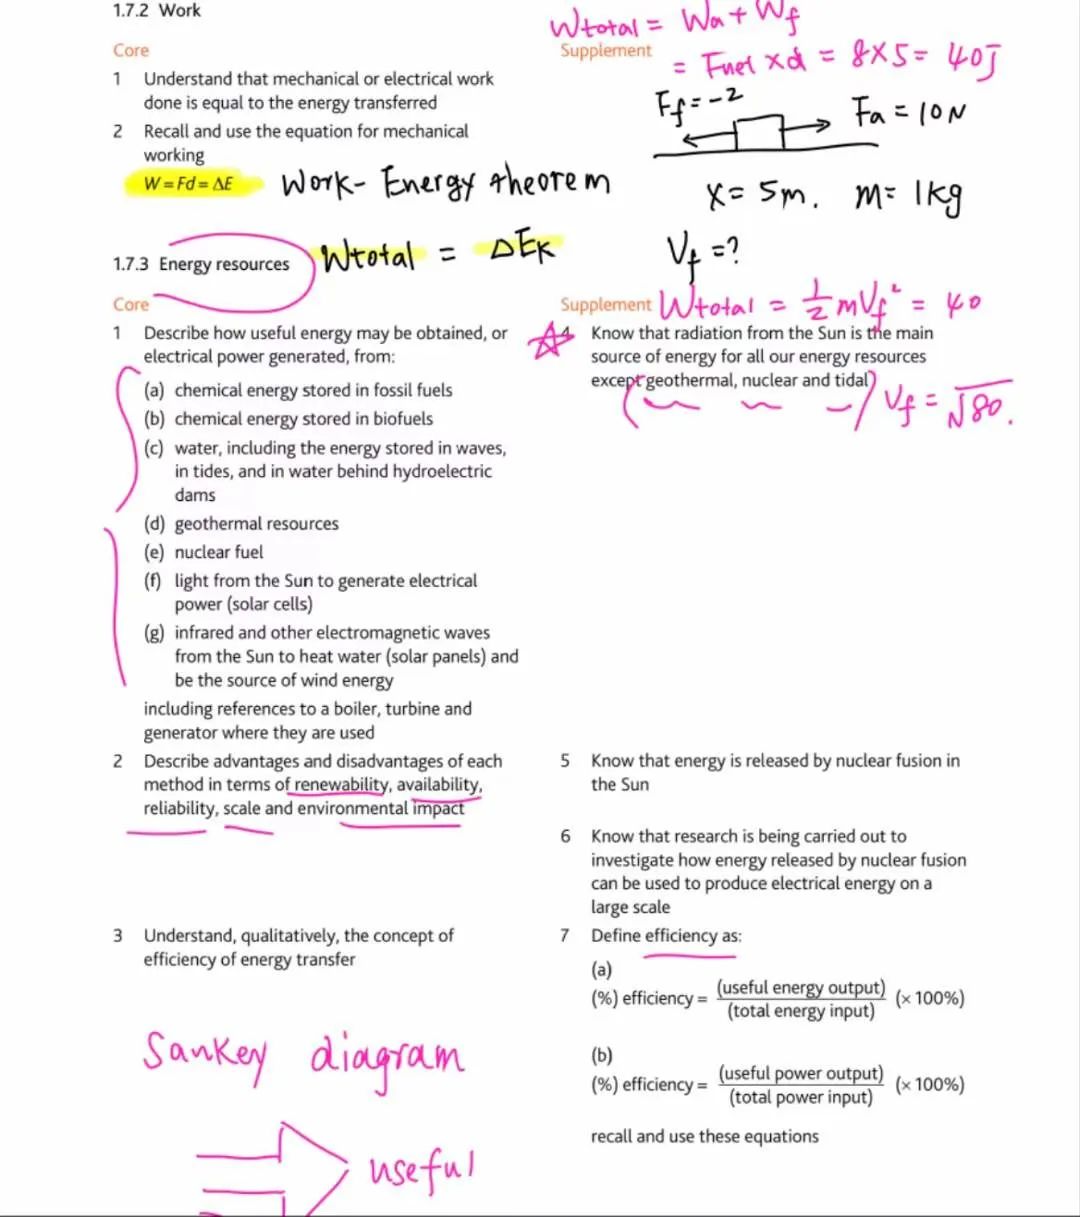 1.7.2 Work
Wtotal = Wa + Wf
Core
Supplement
= Fnet xd = 8x5= 40J
1 Understand that mechanical or electrical work
done is equal to the energy transferred
Ff = -2
Fa = 10N
2 Recall and use the equation for mechanical
working
W = Fd = ΔE
Work- Energy theorem
x= 5m. m= 1kg
Wtotal = ΔEK
Vf =?
1.7.3 Energy resources
Core
Supplement
Wtotal = 1/2 mVf² = 40
1 Describe how useful energy may be obtained, or
electrical power generated, from:
(a) chemical energy stored in fossil fuels
(b) chemical energy stored in biofuels
(c) water, including the energy stored in waves,
in tides, and in water behind hydroelectric
dams
(d) geothermal resources
(e) nuclear fuel
(f) light from the Sun to generate electrical
power (solar cells)
(g) infrared and other electromagnetic waves
from the Sun to heat water (solar panels) and
be the source of wind energy
including references to a boiler, turbine and
generator where they are used
4 Know that radiation from the Sun is the main
source of energy for all our energy resources
except geothermal, nuclear and tidal
Vf = √80.
2 Describe advantages and disadvantages of each
method in terms of renewability, availability,
reliability, scale and environmental impact
5 Know that energy is released by nuclear fusion in
the Sun
6 Know that research is being carried out to
investigate how energy released by nuclear fusion
can be used to produce electrical energy on a
large scale
3 Understand, qualitatively, the concept of
efficiency of energy transfer
7 Define efficiency as:
(a)
(%) efficiency = (useful energy output) / (total energy input) (× 100%)
(b)
(%) efficiency = (useful power output) / (total power input) (× 100%)
recall and use these equations
Sankey diagram
useful